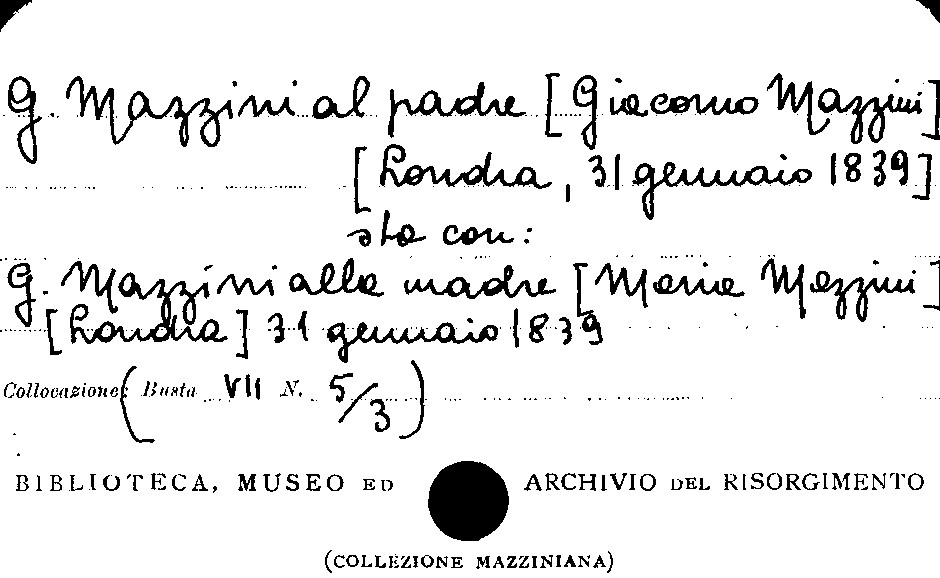 G. Mazzini al padre [Giacomo Mazzini]
[Londra, 31 gennaio 1839]
sta con:
G. Mazzini alla madre [Maria Mazzini]
[Londra] 31 gennaio 1839
Collocazione: (Busta VII N. 5/3)
BIBLIOTECA, MUSEO ED ARCHIVIO DEL RISORGIMENTO
(COLLEZIONE MAZZINIANA)